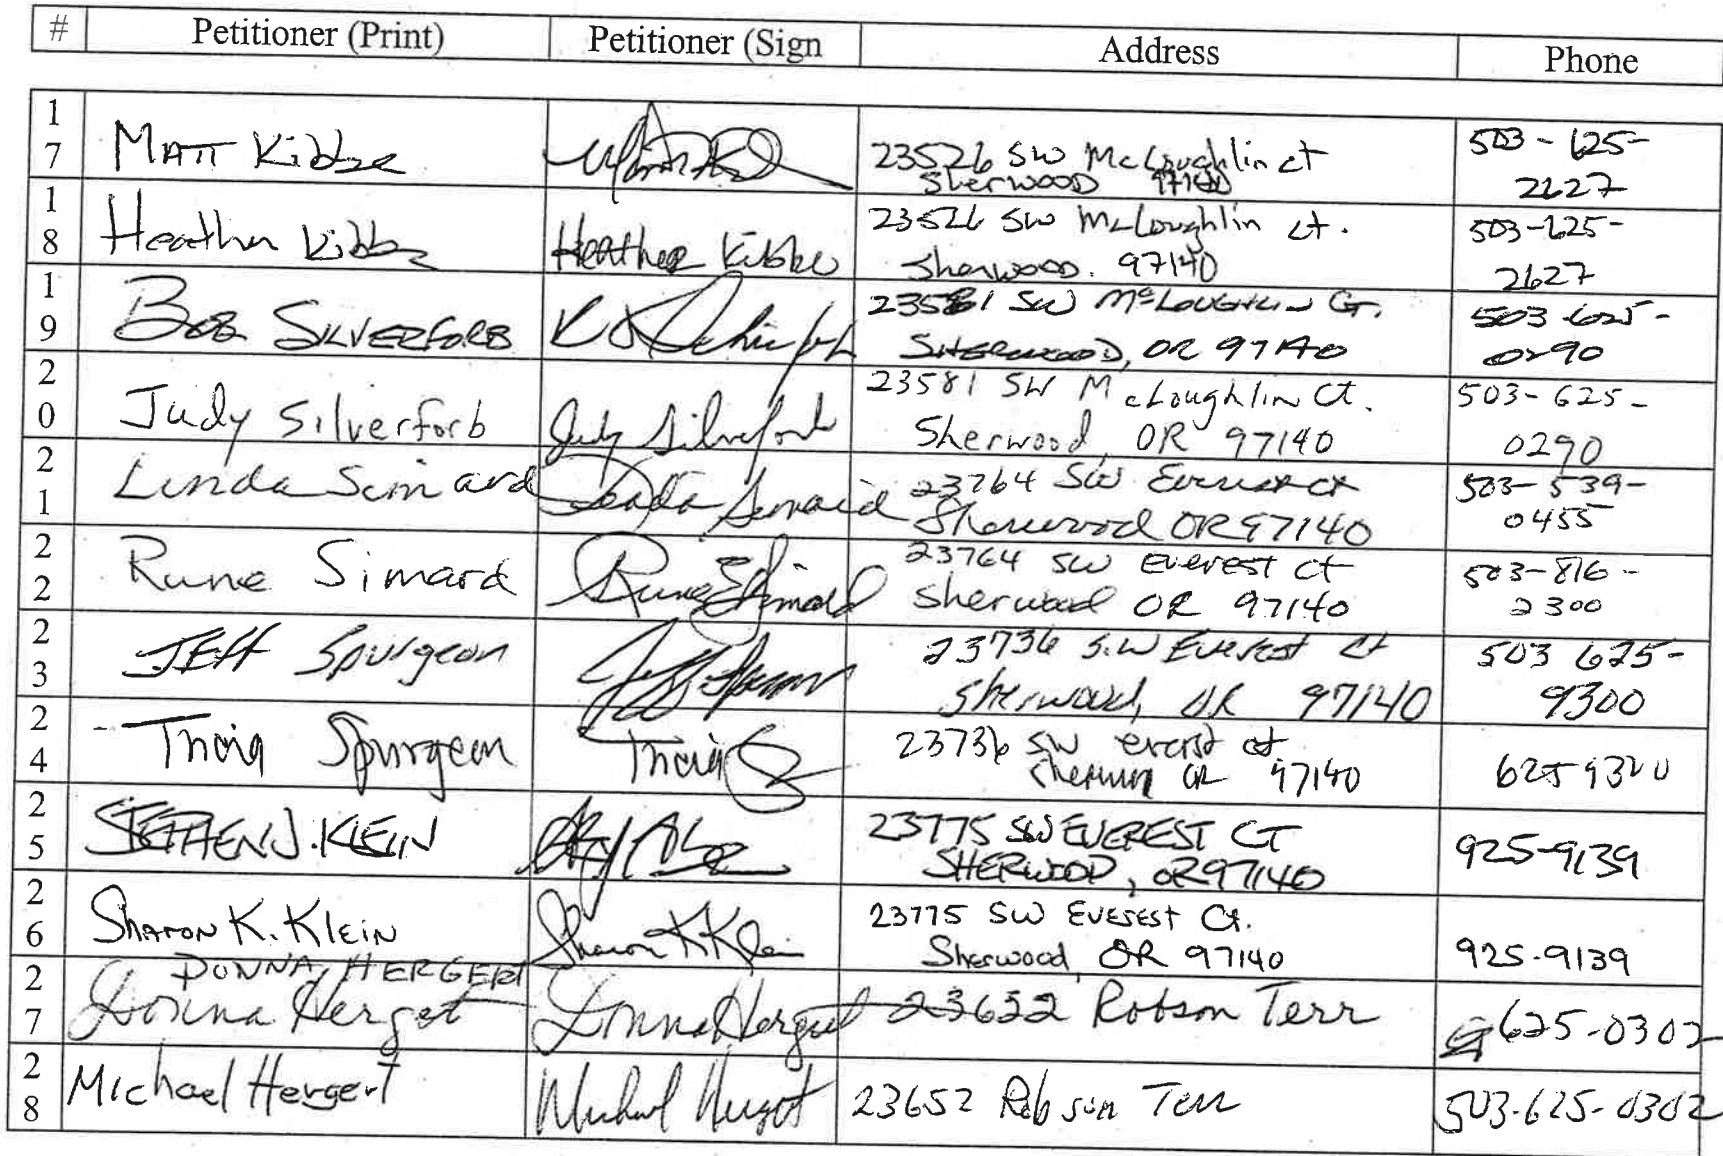 # Petitioner (Print) Petitioner (Sign Address Phone
17 MATT Kibbe 23526 SW McLoughlin ct 503-625-
Sherwood 97140 2627
18 Heather Kibbe Heather Kibbe 23526 SW McLoughlin ct. 503-625-
Sherwood. 97140 2627
19 BOB SILVERFORB 23581 SW McLOUGHLIN CT. 503-625-
SHERWOOD, OR 97140 0290
20 Judy Silverforb Judy Silverforb 23581 SW McLoughlin Ct. 503-625-
Sherwood, OR 97140 0290
21 Linda Simard Linda Simard 23764 SW Everest Ct 503-539-
Sherwood OR 97140 0455
22 Rune Simard Rune E Simard 23764 SW Everest Ct 503-816-
Sherwood OR 97140 2300
23 JEFF Spurgeon 23736 S.W Everest Ct 503 625-
Sherwood, OR 97140 9300
24 Spurgeon 23736 SW everst ct 625 9320
OR 97140
25 STEPHEN J. KLEIN 23775 SW EVEREST CT 925-9139
SHERWOOD, OR 97140
26 Sharon K. Klein Sharon K Klein 23775 SW Everest Ct. 925-9139
Sherwood, OR 97140
DONNA HERGERT
27 Donna Hergert Donna Hergert 23652 Robson Terr 625-0302
28 Michael Hergert Michael Hergert 23652 Robson Terr 503-625-0302